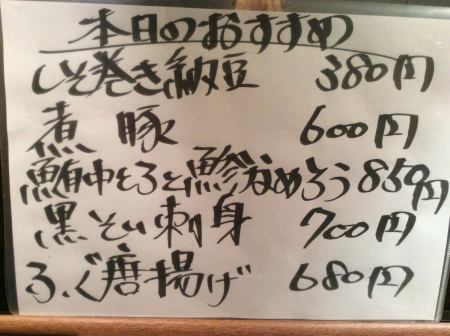 本日のおすすめ
しそ巻き納豆 380円
煮豚 600円
鮪中とろと鯵なめろう 850円
黒そい刺身 700円
ふぐ唐揚げ 680円